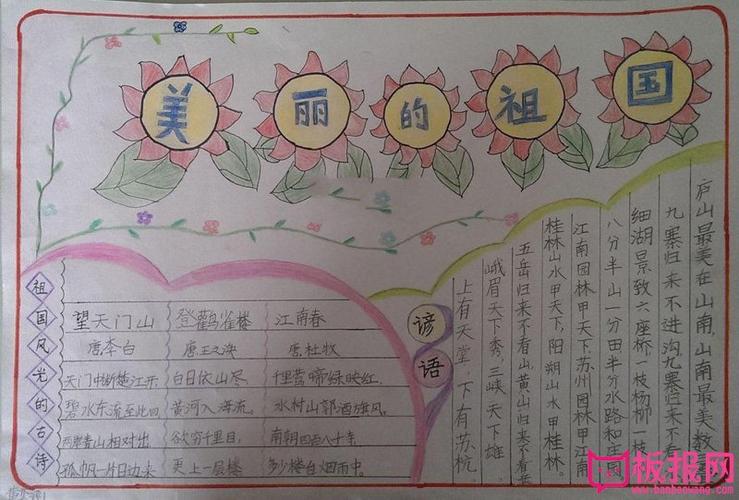 美丽的祖国
祖国风光的古诗
望天门山
唐.李白
天门中断楚江开
碧水东流至此回
两岸青山相对出
孤帆一片日边来
登鹳雀楼
唐.王之涣
白日依山尽
黄河入海流。
欲穷千里目,
更上一层楼
江南春
唐.杜牧
千里莺啼绿映红
水村山郭酒旗风。
南朝四百八十寺
多少楼台烟雨中。
谚语
上有天堂,下有苏杭。
峨眉天下秀,三峡天下雄。
五岳归来不看山,黄山归来不看岳
桂林山水甲天下,阳朔山水甲桂林。
江南园林甲天下,苏州园林甲江南
八分半山一分田半分水路和庄园
细湖景致六座桥,一枝杨柳一枝
九寨归来不进沟,九寨归来不看
庐山最美在山南,山南最美数
板报网
www.banbaowang.com